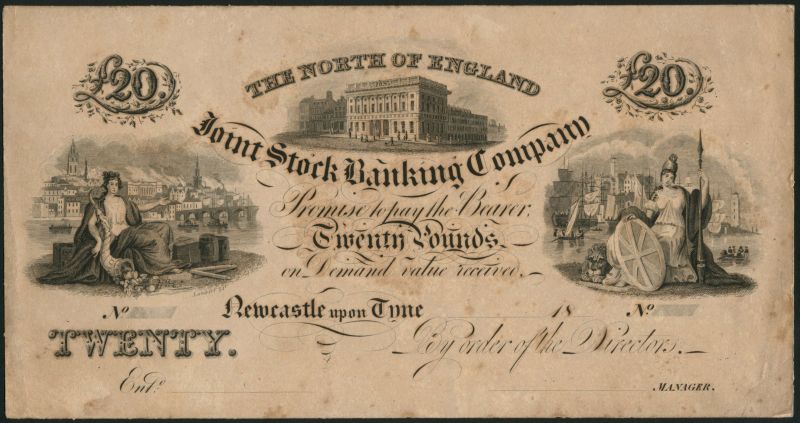 £20.
THE NORTH OF ENGLAND
£20.
Joint Stock Banking Company
I
Promise to pay the Bearer,
Twenty Pounds
on Demand value received.
No
Newcastle upon Tyne
18
No
TWENTY.
By order of the Directors.
Entd.
MANAGER.